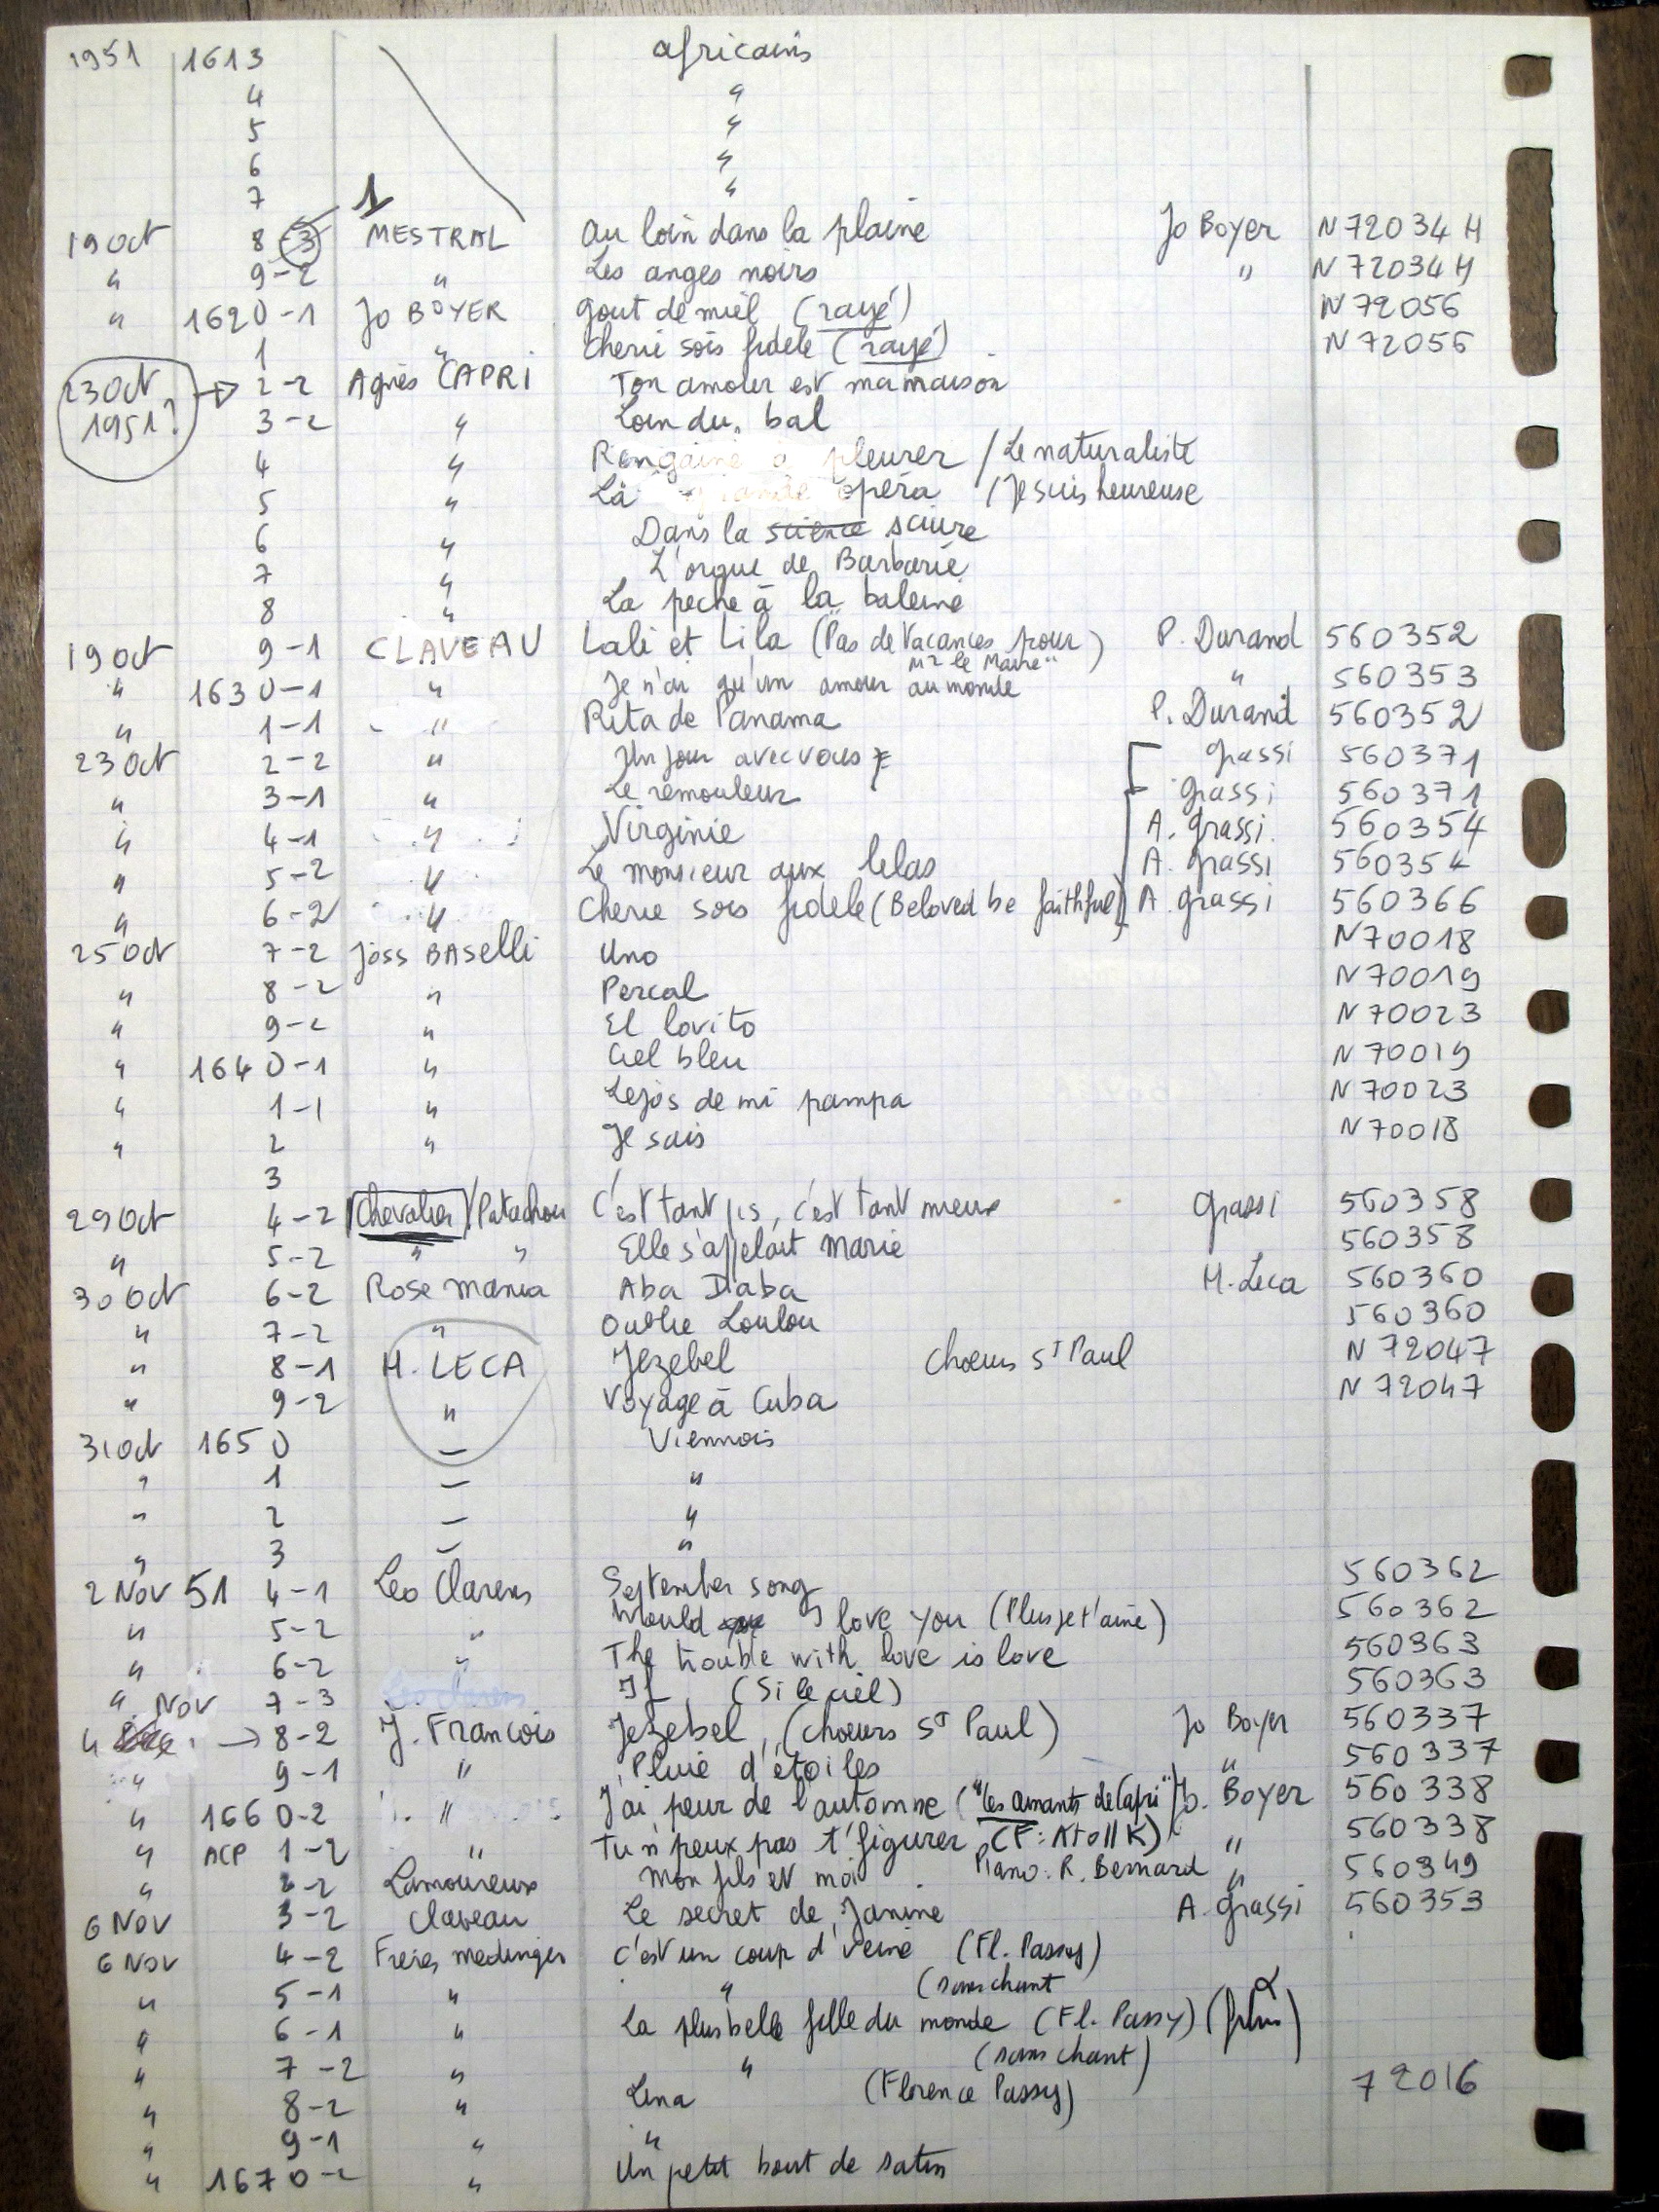 1951 1613 africains
4 "
5 "
6 "
7 "
1
19 Oct 8-3 MESTRAL Au loin dans la plaine Jo Boyer N 72034 H
" 9-2 " Les anges noirs " N 72034 H
" 1620-1 Jo BOYER Gout de miel (rayé) N 72056
1 " Cherie sois fidele (rayé) N 72056
23 Oct 1951? → 2-2 Agnès CAPRI Ton amour est ma maison
3-2 " Loin du bal
4 " Rengaine à pleurer / Le naturaliste
5 " La opéra / Je suis heureuse
6 " Dans la science sciure
7 " L'orgue de Barbarie
8 " La peche à la baleine
19 Oct 9-1 CLAVEAU Lali et Lila ("Pas de Vacances pour Mr le Maire") P. Durand 560352
" 1630-1 " Je n'ai qu'un amour au monde " 560353
" 1-1 " Rita de Panama P. Durand 560352
23 Oct 2-2 " Un jour avec vous grassi 560371
" 3-1 " Le remouleur grassi 560371
" 4-1 " Virginie A. grassi 560354
" 5-2 " Le monsieur aux lilas A. grassi 560354
" 6-2 " Cherie sois fidele (Beloved be faithful) A. grassi 560366
25 Oct 7-2 Joss BASelli Uno N 70018
" 8-2 " Percal N 70019
" 9-2 " El lovito N 70023
" 1640-1 " Ciel bleu N 70019
" 1-1 " Lejos de mi pampa N 70023
" 2 " Je sais N 70018
3
29 Oct 4-2 Chevalier / Patachou C'est tant pis, c'est tant mieux Grassi 560358
" 5-2 " " Elle s'appelait Marie 560358
30 Oct 6-2 Rose mania Aba Daba M. Leca 560360
" 7-2 " Oublie Loulou 560360
" 8-1 M. LECA Jezebel Choeurs St Paul N 72047
" 9-2 " Voyage à Cuba N 72047
31 Oct 1650 – Viennois
" 1 – "
" 2 – "
" 3 – "
2 Nov 51 4-1 Leo Clarens September song 560362
" 5-2 " Would I love you (Plus je t'aime) 560362
" 6-2 " The trouble with love is love 560363
" 7-3 Leo Clarens If (Si le ciel) 560363
4 Nov → 8-2 J. Francois Jezebel, (choeurs St Paul) Jo Boyer 560337
" 9-1 " Pluie d'étoiles " 560337
" 1660-2 " J'ai peur de l'automne ("Les amants de Capri") Jo. Boyer 560338
" ACP 1-2 " Tu n'peux pas t'figurer (F: Atoll K) " 560338
" 2-2 Lamoureux Mon fils et moi Piano: R. Bernard " 560349
6 Nov 3-2 Claveau Le secret de Janine A. grassi 560353
6 Nov 4-2 Freres medinger C'est un coup d'veine (Fl. Passy)
" 5-1 " " (sans chant
" 6-1 " La plus belle fille du monde (Fl. Passy)
" 7-2 " " (sans chant)
" 8-2 " Lena (Florence Passy) 72016
" 9-1 " "
" 1670-2 " Un petit bout de satin